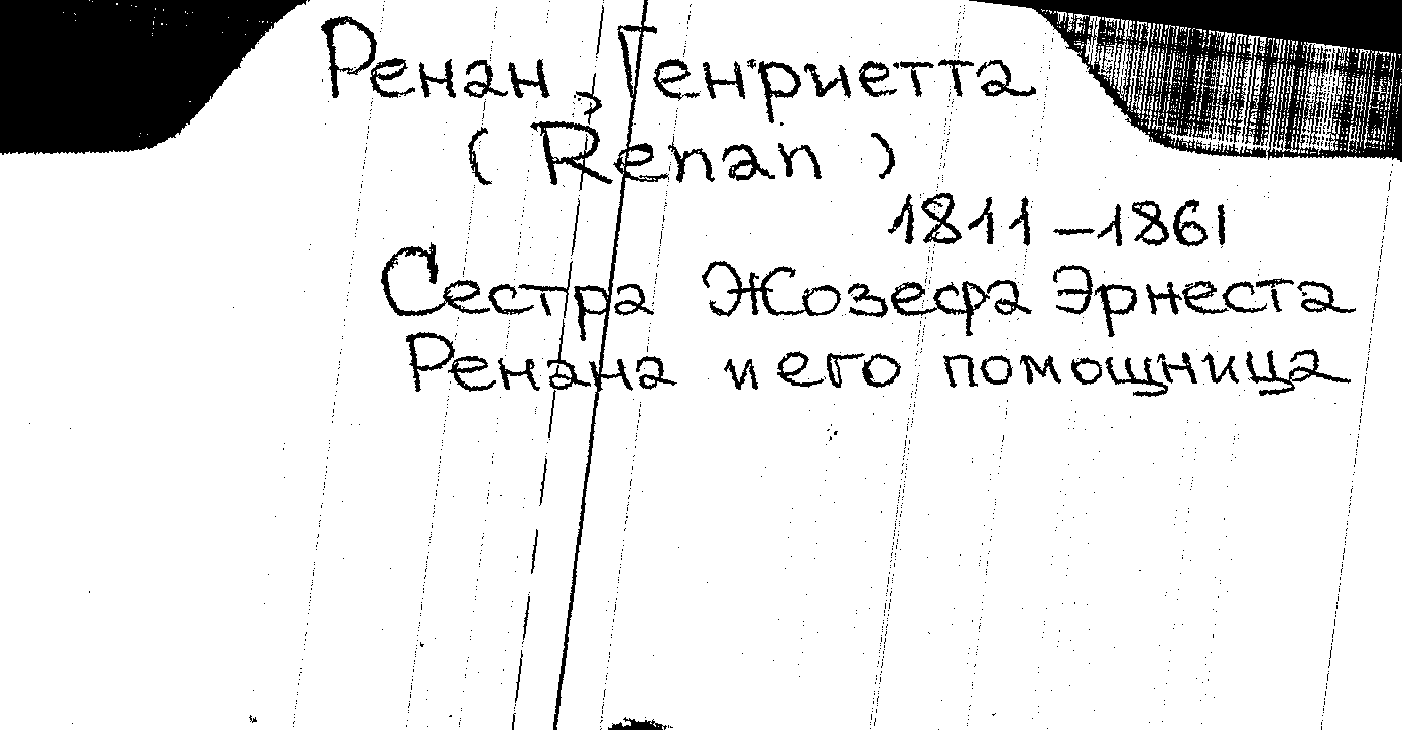 Ренан, Генриетта
(Renan)
1811-1861
Сестра Жозефа Эрнеста
Ренана и его помощница